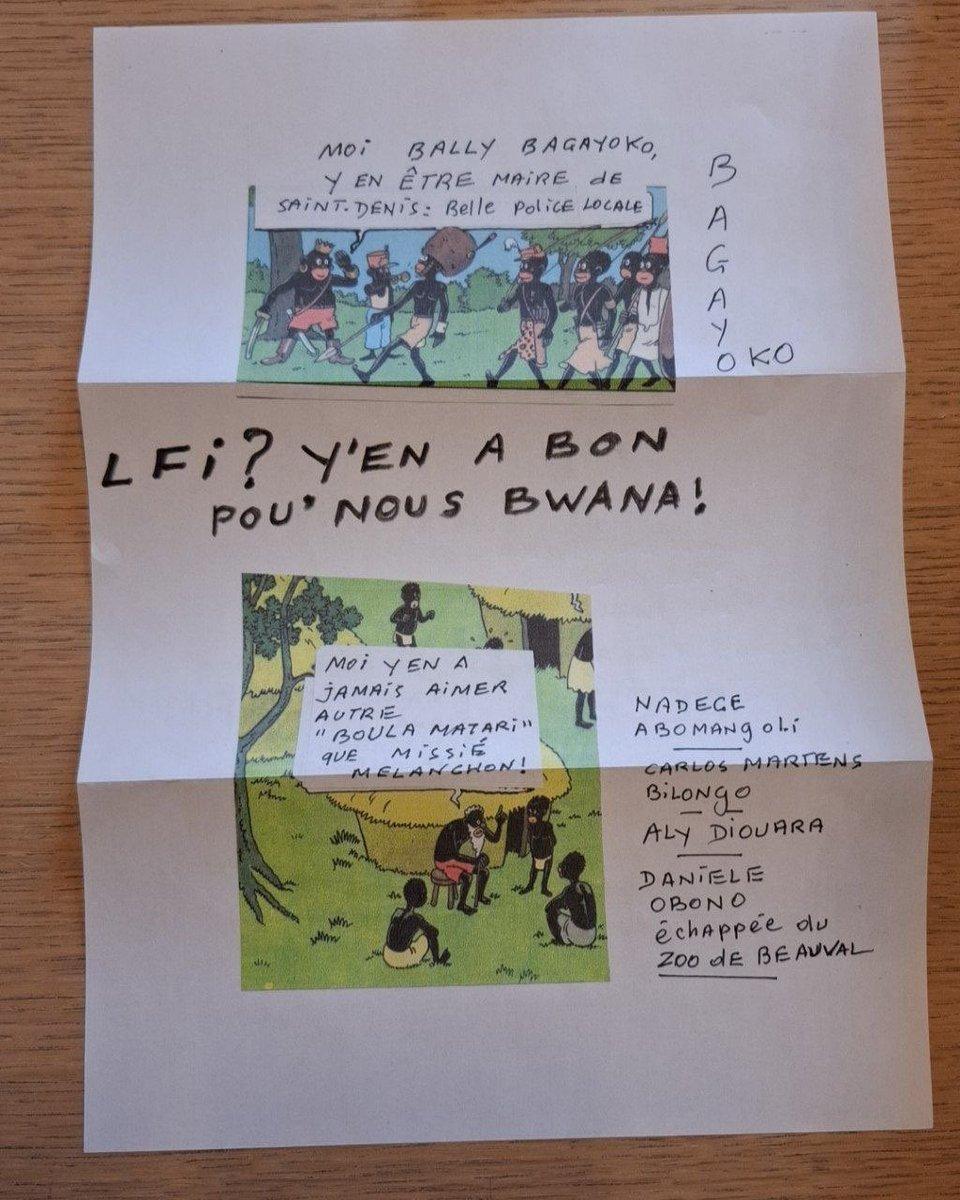 MOI BALLY BAGAYOKO,
Y EN ÊTRE MAIRE de
SAINT-DENIS: Belle POLICE LOCALE
B
A
G
A
Y
OKO
LFI? Y'EN A BON
POU' NOUS BWANA!
MOI Y EN A
JAMAIS AIMER
AUTRE
"BOULA MATARI"
QUE MISSIÉ
MELANCHON!
NADEGE
ABOMANgOLI
CARLOS MARTENS
BILONgO
ALY DIOUARA
DANIELE
OBONO
échappée du
ZOO de BEAUVAL